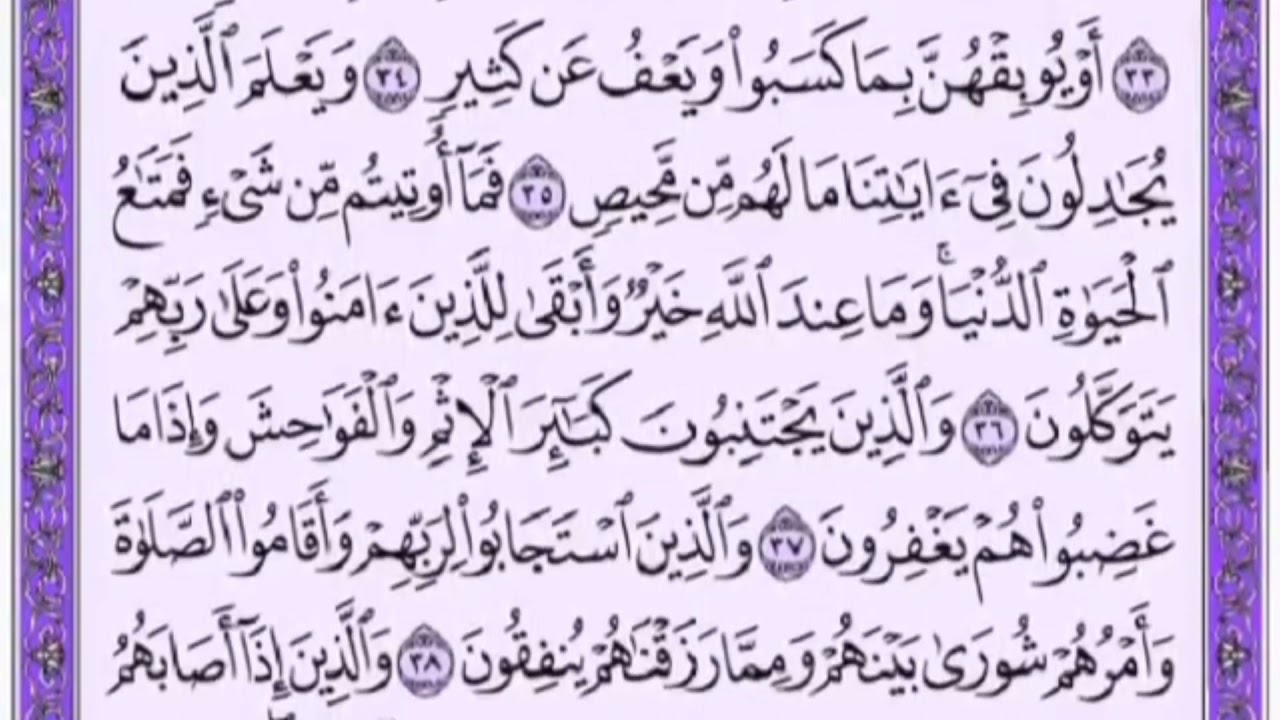 ٣٣ أَوْ يُوبِقْهُنَّ بِمَا كَسَبُوا۟ وَيَعْفُ عَن كَثِيرٍ ٣٤ وَيَعْلَمَ ٱلَّذِينَ
يُجَٰدِلُونَ فِىٓ ءَايَٰتِنَا مَا لَهُم مِّن مَّحِيصٍ ٣٥ فَمَآ أُوتِيتُم مِّن شَىْءٍ فَمَتَٰعُ
ٱلْحَيَوٰةِ ٱلدُّنْيَا ۚ وَمَا عِندَ ٱللَّهِ خَيْرٌ وَأَبْقَىٰ لِلَّذِينَ ءَامَنُوا۟ وَعَلَىٰ رَبِّهِمْ
يَتَوَكَّلُونَ ٣٦ وَٱلَّذِينَ يَجْتَنِبُونَ كَبَٰٓئِرَ ٱلْإِثْمِ وَٱلْفَوَٰحِشَ وَإِذَا مَا
غَضِبُوا۟ هُمْ يَغْفِرُونَ ٣٧ وَٱلَّذِينَ ٱسْتَجَابُوا۟ لِرَبِّهِمْ وَأَقَامُوا۟ ٱلصَّلَوٰةَ
وَأَمْرُهُمْ شُورَىٰ بَيْنَهُمْ وَمِمَّا رَزَقْنَٰهُمْ يُنفِقُونَ ٣٨ وَٱلَّذِينَ إِذَآ أَصَابَهُمُ